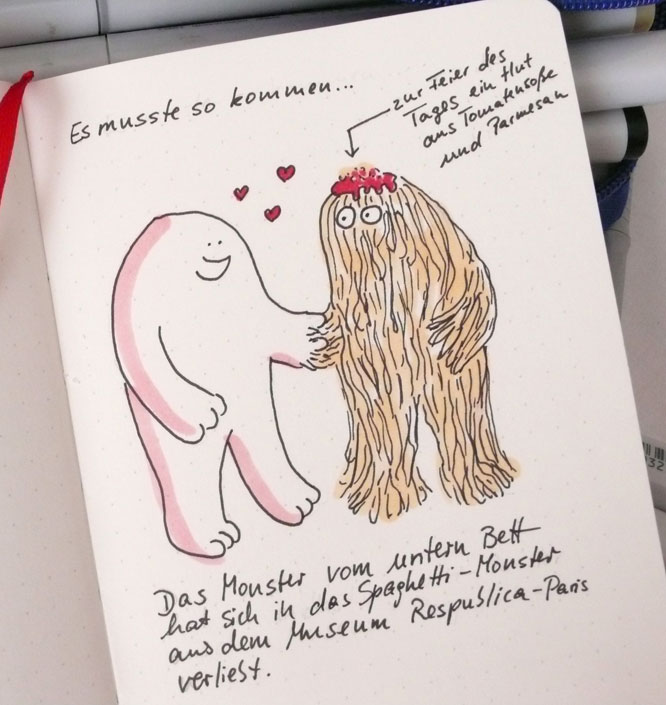 Es musste so kommen...
zur Feier des
Tages ein Hut
aus Tomatensoße
und Parmesan
Das Monster vom untern Bett
hat sich in das Spaghetti-Monster
aus dem Museum Respublica-Paris
verliebt.
32